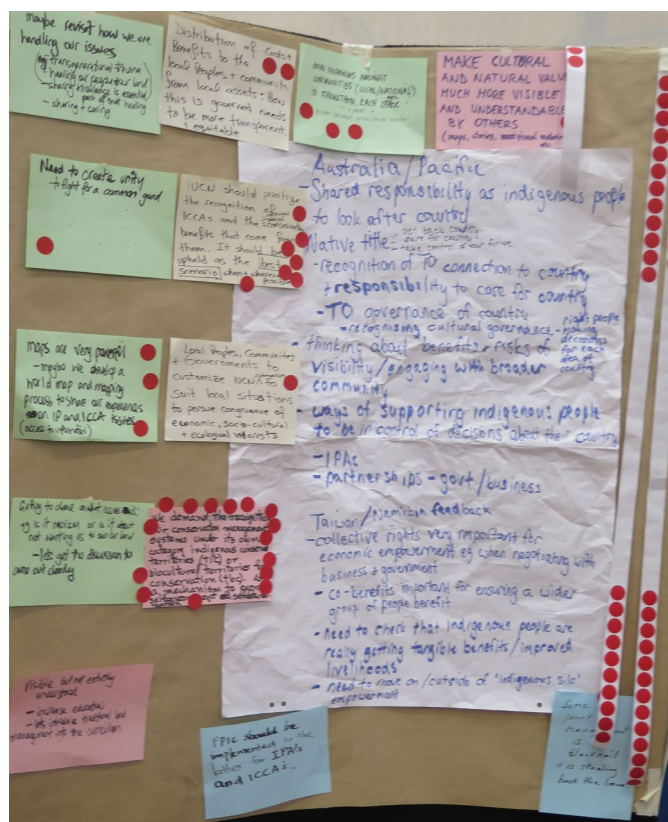 maybe revisit how we are
handling our issues
(eg transgenerational trauma
healing our people/our land
- sharing knowledge is essential
part of that healing
- sharing + caring
Distribution of Costs +
Benefits to the
local Peoples + community
from local assets. How
this is governed needs
to be more transparent
+ equitable
COMMUNITIES (LOCAL/NATIONAL)
TO STRENGTHEN EACH OTHER
MAKE CULTURAL
AND NATURAL VALUE
MUCH MORE VISIBLE
AND UNDERSTANDABLE
BY OTHERS
(maps, stories,
Need to create unity
to fight for a common good
IUCN should prioritize
the recognition of
ICCAs and the
benefits that come from
them. It should be
upheld as the best
scenario when + wherever
possible
maps are very powerful
- maybe we develop a
world map and mapping
process to share our experiences
on IP and ICCA issues
(access to internet)
Local Peoples, Communities
+ Governments to
customize IUCN
suit local situations
to pursue congruence of
economic, socio-cultural
+ ecological interests
Getting to about what issues
eg is it racism, or is it about
not wanting us to our land
- lets get the discussion to
come out clearly
We demand the recognition
of our conservation management
systems under its own
category indigenous
territories (TIC) or
biocultural territories for
conservation (tbc).
a mechanism to
Visible but not entirely
understood
- increase education
- lets introduce traditional land
management into the curriculum
FPIC should be
implemented to the
letter for IPAs
and ICCAs.
Some
joint
is
blackmail
+ is stealing
back the land
Australia/Pacific
- Shared responsibility as indigenous people
to look after country
Native title: - get back country
- care for country
- take control of our future
- recognition of TO connection to country
+ responsibility to care for country
- TO governance of country
- recognising cultural governance - right people
making
decisions
for each
area of
country
- thinking about benefits + risks of
visibility/engaging with broader
community
- ways of supporting indigenous people
to be in control of decisions about their country
- IPAs
- partnerships - govt./business
Taiwan/Namibia feedback
- collective rights very important for
economic empowerment eg when negotiating with
business & government
- co-benefits important for ensuring a wider
group of people benefit
- need to check that indigenous people are
really getting tangible benefits/improved
livelihoods
- need to move on/outside of "indigenous silo"
empowerment